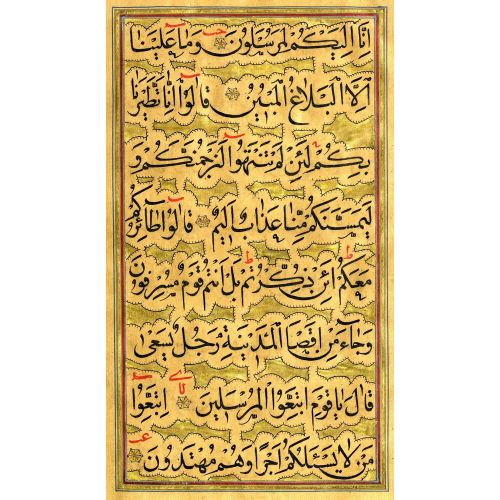 اِنَّا اِلَيْكُمْ لَمُرْسَلُونَ وَمَا عَلَيْنَا
اِلَّا الْبَلَاغُ الْمُبِينُ قَالُوا اِنَّا تَطَيَّرْنَا
بِكُمْ لَئِنْ لَمْ تَنْتَهُوا لَنَرْجُمَنَّكُمْ وَ
لَيَمَسَّنَّكُمْ مِنَّا عَذَابٌ اَلِيمٌ قَالُوا طَائِرُكُمْ
مَعَكُمْ اَئِنْ ذُكِّرْتُمْ بَلْ اَنْتُمْ قَوْمٌ مُسْرِفُونَ
وَجَاءَ مِنْ اَقْصَا الْمَدِينَةِ رَجُلٌ يَسْعٰى
قَالَ يَا قَوْمِ اتَّبِعُوا الْمُرْسَلِينَ اِتَّبِعُوا
مَنْ لَا يَسْئَلُكُمْ اَجْرًا وَهُمْ مُهْتَدُونَ